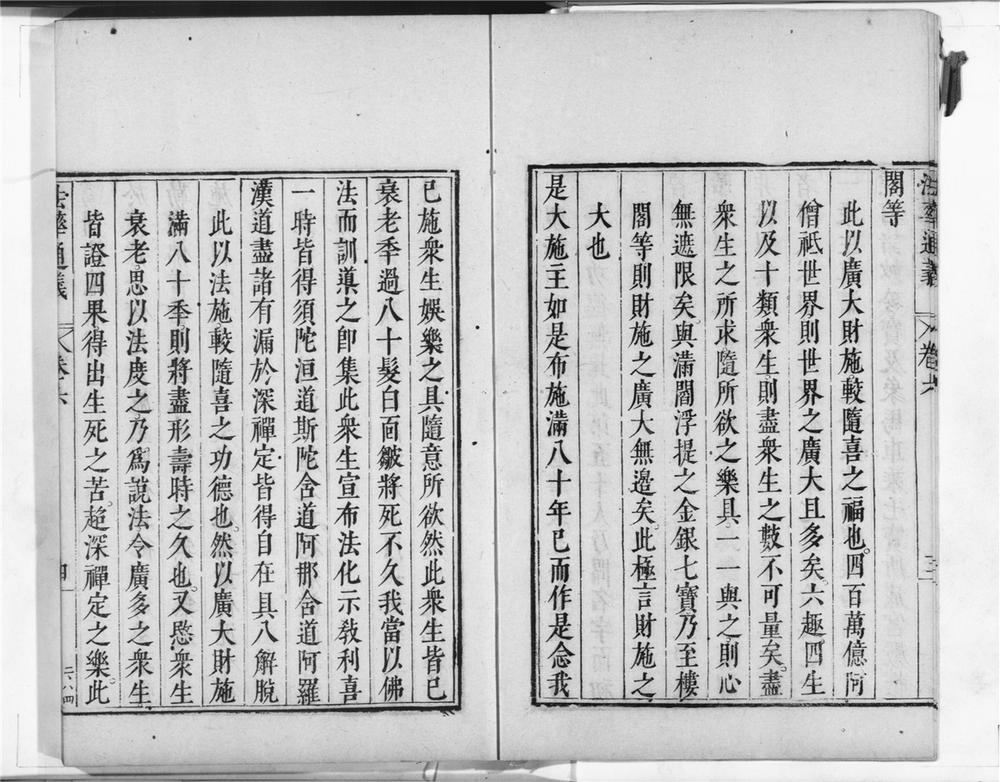 法華通義 卷六 三
閣等
此以廣大財施較隨喜之福也。四百萬億阿
僧祇世界則世界之廣大且多矣。六趣四生
以及十類衆生則盡衆生之數不可量矣。盡
衆生之所求隨所欲之樂具一一與之則心
無遮限矣與滿閻浮提之金銀七寶乃至樓
閣等則財施之廣大無邊矣。此極言財施之
大也
是大施主如是布施滿八十年已而作是念我
已施衆生娛樂之具隨意所欲然此衆生皆已
衰老年過八十髮白面皺將死不久我當以佛
法而訓導之卽集此衆生宣布法化示教利喜
一時皆得須陀洹道斯陀含道阿那含道阿羅
漢道盡諸有漏於深禪定皆得自在具八解脫
此以法施較隨喜之功德也。然以廣大財施
滿八十季則將盡形壽時之久也。又愍衆生
衰老。思以法度之乃爲說法令廣多之衆生
皆證四果得出生死之苦。超深禪定之樂。此
法華通義 卷六 四 二六八四